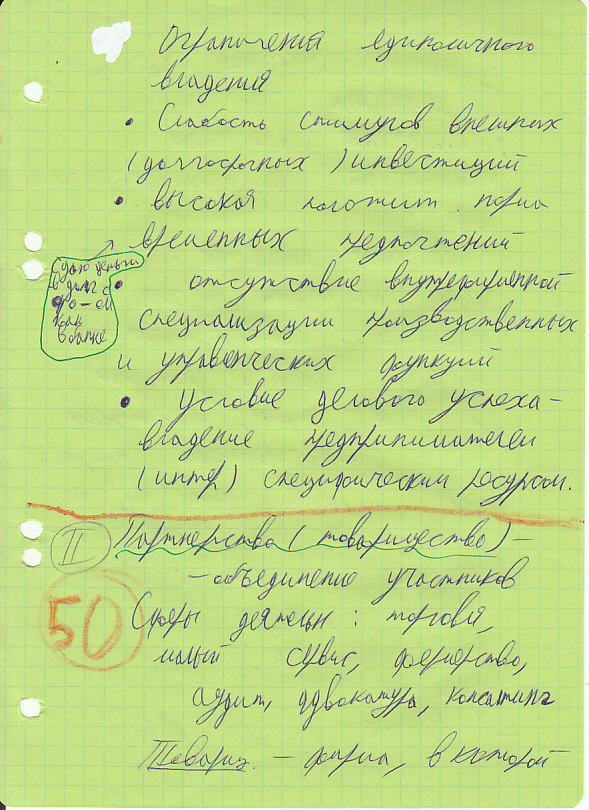 Ограничения единоличного
владения
• Слабость стимулов внешних
(долгосрочных) инвестиций
• высокая положит. норма
временных предпочтений
Сдаю деньги
в долг с
как
в банке
• отсутствие внутрифирменной
специализации производственных
и управленческих функций
• условие делового успеха –
владение предпринимателем
(интер) специфическим ресурсом.
II Партнерства (товарищество) –
– объединение участников
50
Сферы деятельн : торговля,
малый сервис, фермерство,
аудит, адвокатура, консалтинг
Товарищ. – фирма, в которой